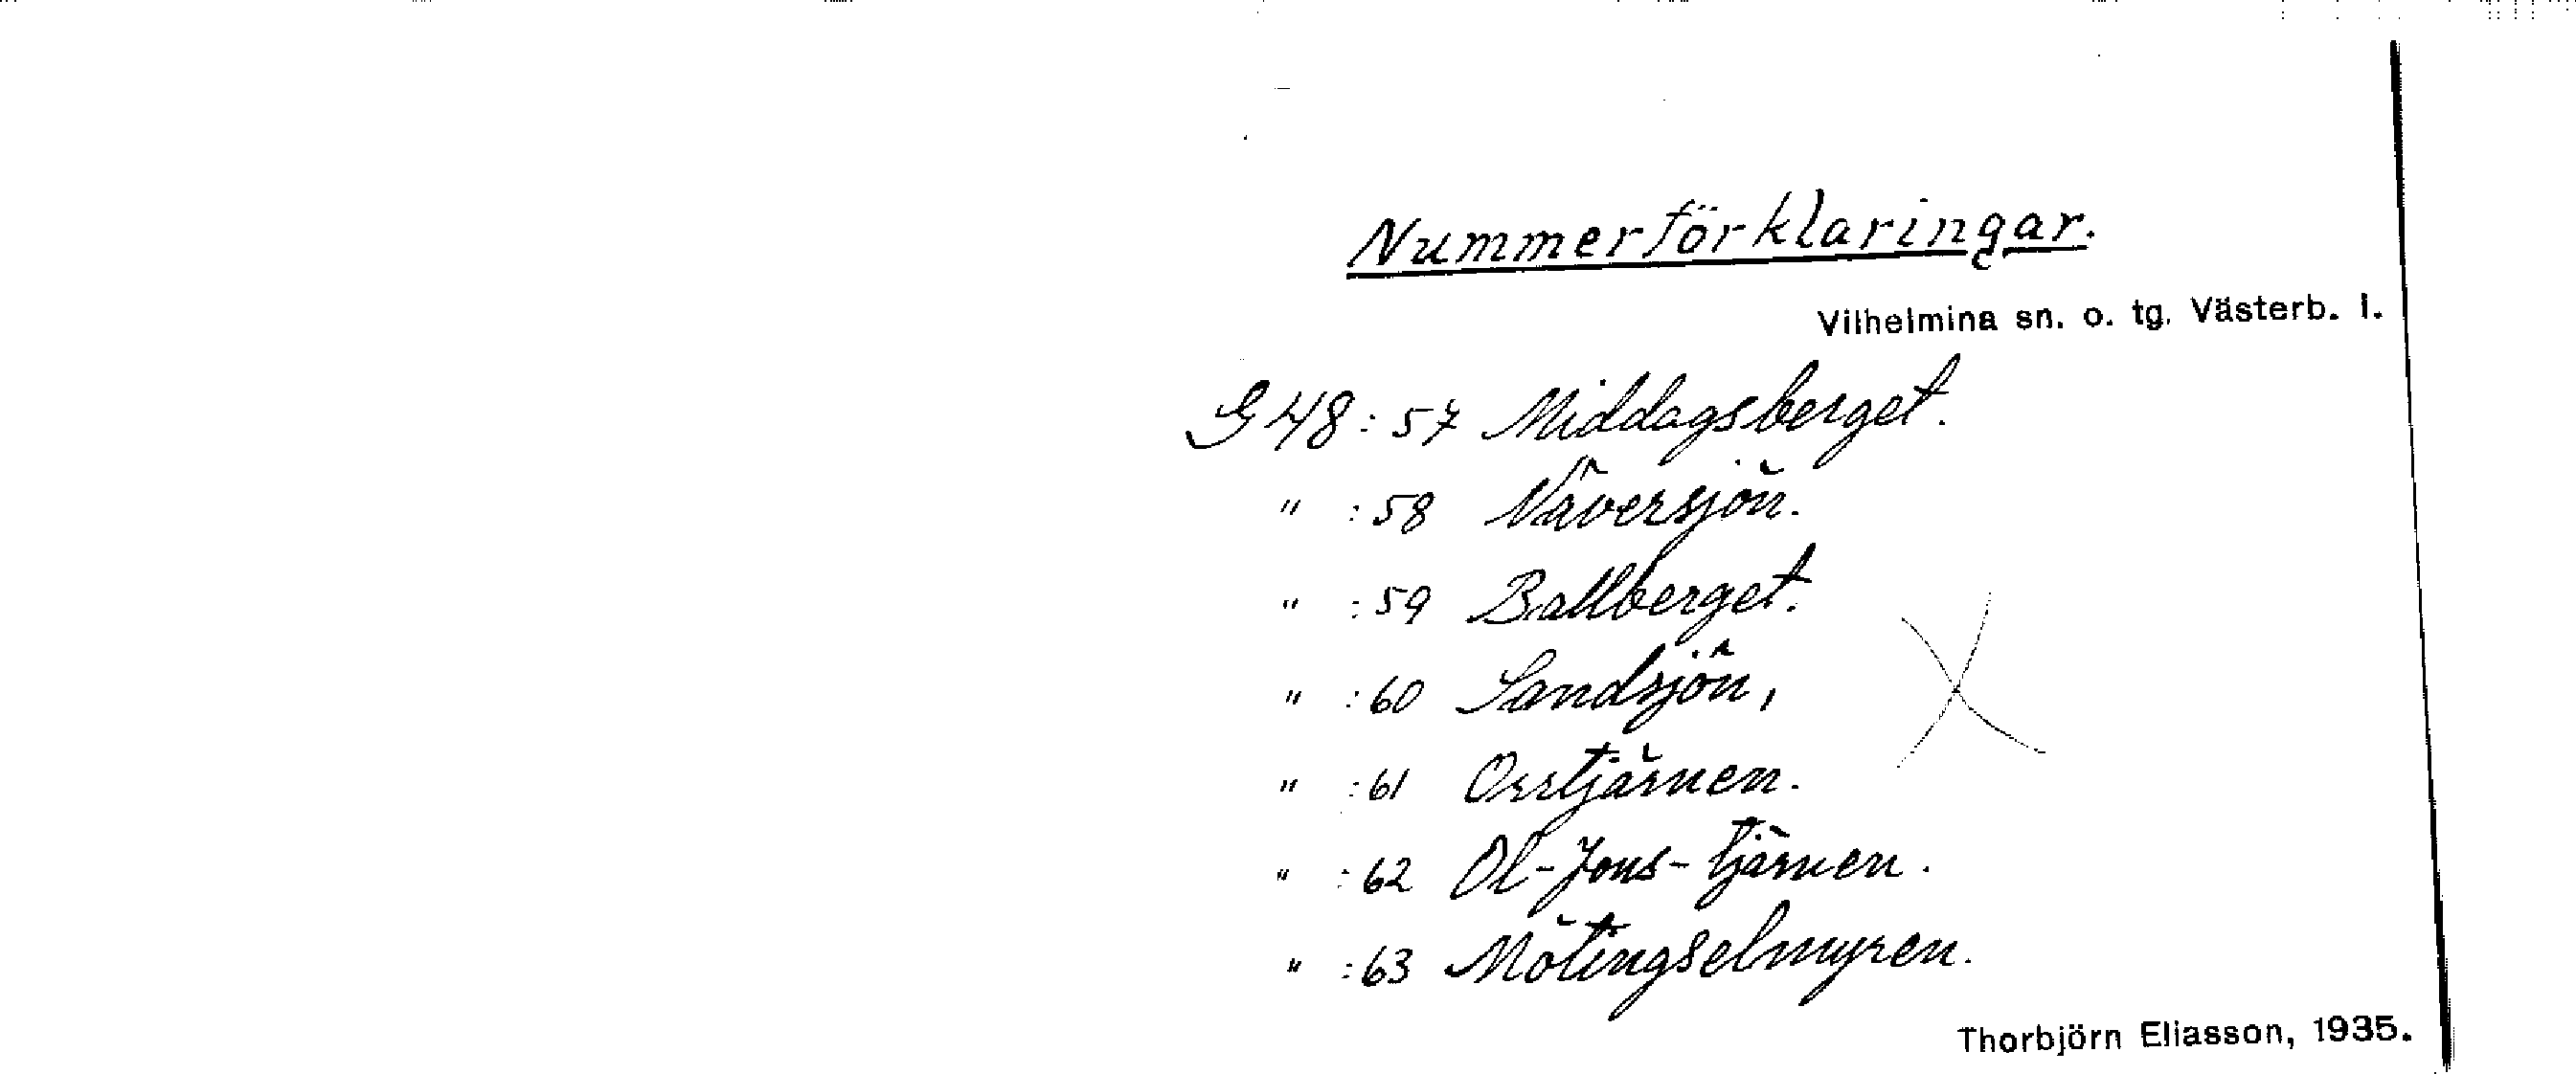 Nummerförklaringar.
Vilhelmina sn. o. tg. Västerb. l.
G 48 : 57 Middagsberget.
" : 58 Näversjön.
" : 59 Ballberget.
" : 60 Sandsjön,
" : 61 Orrtjärnen.
" : 62 Ol-Jons-tjärnen.
" : 63 Mötingselmyren.
Thorbjörn Eliasson, 1935.